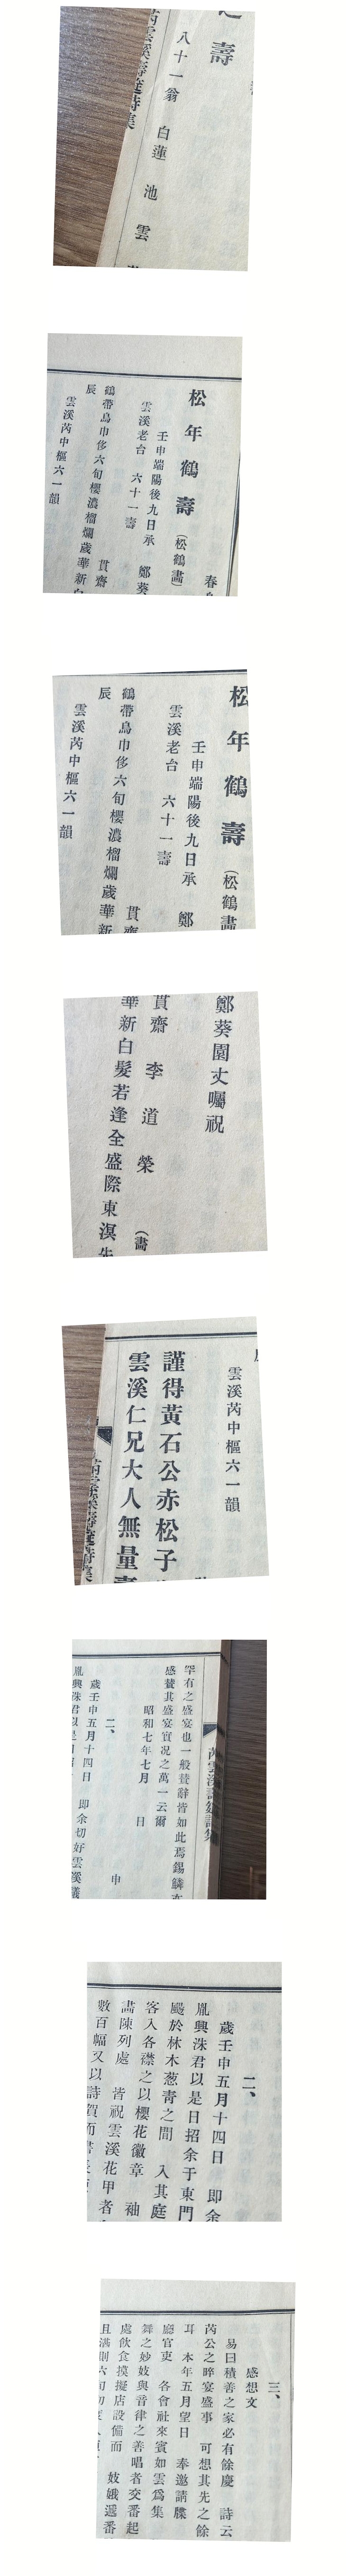 壽
八十一翁 白蓮 池 雲
芮雲溪壽筵詩集
春
松年鶴壽 (松鶴畵)
壬申端陽後九日承 鄭葵
雲溪老台 六十一壽
貫齋
鶴帶島巾侈六旬櫻濃榴爛歲華新白
辰
雲溪芮中樞六一韻
松年鶴壽 (松鶴畵
壬申端陽後九日承 鄭
雲溪老台 六十一壽
貫齋
鶴帶島巾侈六旬櫻濃榴爛歲華新
辰
雲溪芮中樞六一韻
鄭葵園丈囑祝
貫齋 李道榮 (畵
華新白髮若逢全盛際東溟先
雲溪芮中樞六一韻
謹得黃石公赤松子
雲溪仁兄大人無量壽
芮雲溪壽筵詩集
芮雲溪壽筵詩集
罕有之盛宴也一般賛辭皆如此焉錫麟亦
感賛其盛宴實况之萬一云爾
昭和七年七月 日
申
二、
歲壬申五月十四日 即余切好雲溪議
胤興洙君以是日
二、
歲壬申五月十四日 即余
胤興洙君以是日招余于東門
颺於林木葱靑之間 入其庭
客入各襟之以櫻花徽章 袖
畵陳列處 皆祝雲溪花甲者
數百幅又以詩賀而
三、
感想文
易曰積善之家必有餘慶 詩云
芮公之晬宴盛事 可想其先之餘
耳 本年五月望日 奉邀請牒
廳官吏 各會社來賓如雲爲集
舞之妙妓與音律之善唱者交番起
處飮食摸擬店設備而 妓娥遞番
且滿則六旬